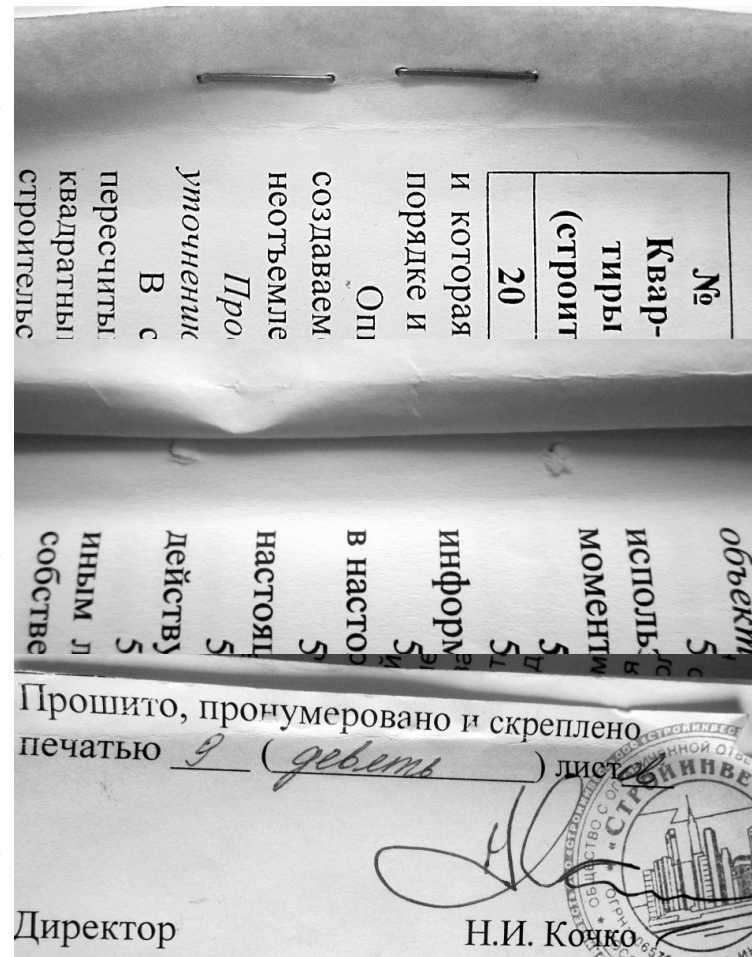 №
Квар-
тиры
(строит
20
и которая
порядке и
Опи
создаваем
неотъемле
Про
уточнению
В с
пересчиты
квадратны
строительс
объект
исполь
момент
5
информ
5
в насто
5
настоящ
5
действу
5
иным л
собстве
Прошито, пронумеровано и скреплено
печатью 9 (девять) листов
Директор Н.И. Кочко
ОБЩЕСТВО С ОГРАНИЧЕННОЙ ОТВ
«СТРОЙИНВЕ
ОГРН